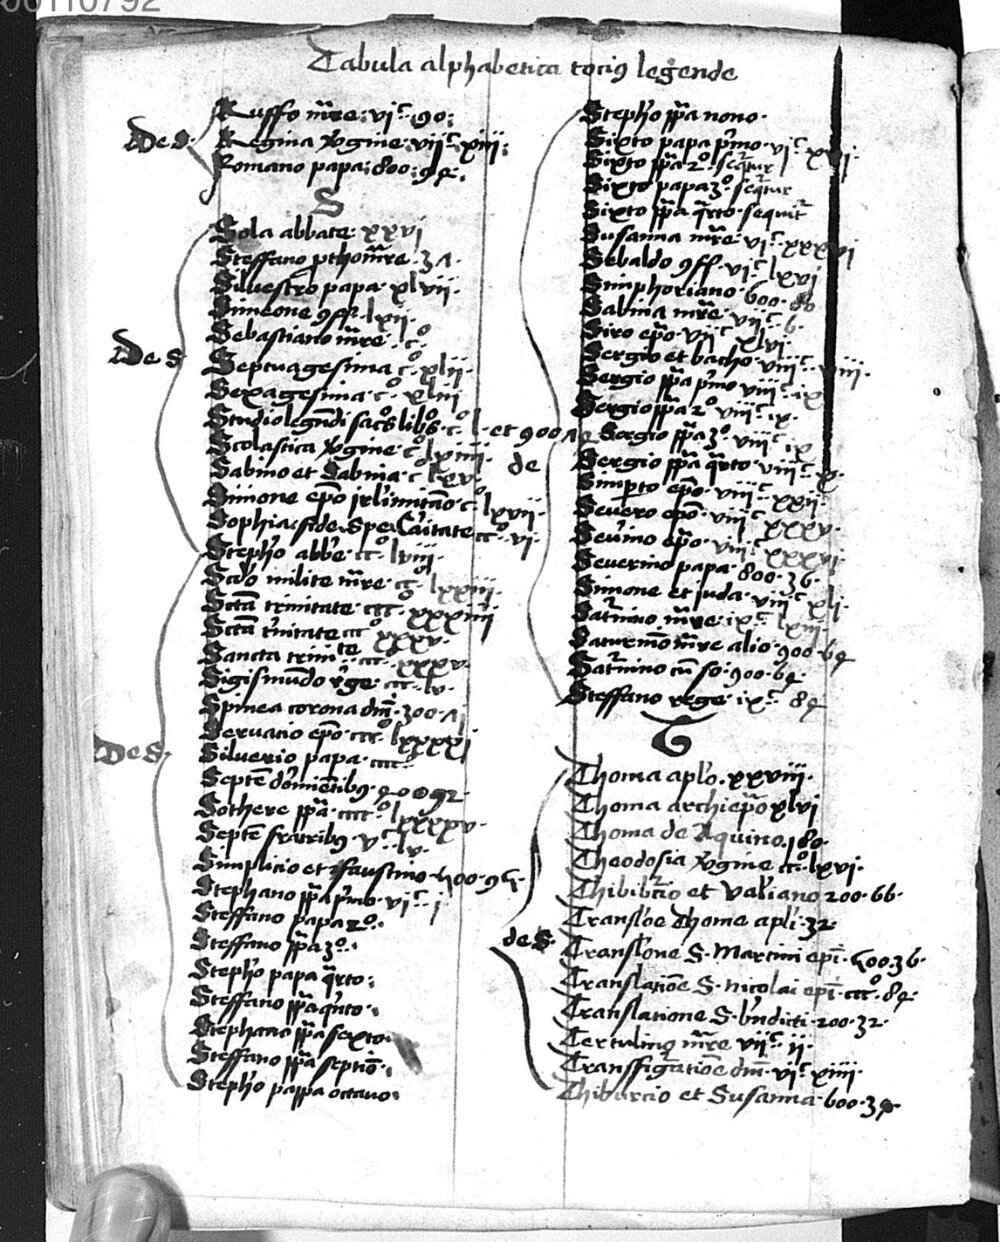 00110792
Tabula alphabetica tociꝰ legende
De s.
Ruffo mr̄e: viͨ: 90:
Regina v̄gine viiͨ xiii:
Romano papa: 800: 94.
S
De s
Sola abbate xxvi
Steffano ꝓthom̄re. 31.
Silvestro papa xlvii.
Simeone ꝯff. lxii.
Sebastiano m̄re. c̊
Septuagesima c̊ xlii.
Sexagesima c̊ xliii
Studio legēdi sac̄s lib̄s. c̊ l. et 900
Scolastica v̄gine c̊ lxiiii.
Sabino et Sabina. c̊ lxv.
Simone ep̄o c̊ lxvii.
Sophia: fide Spe Caritate cc̊. vi.
Steph̄o abb̄e. cc̊ lviii.
milite m̄re. cc̊ lxxiii.
Sctā trinitate ccc̊ xxxiiii
Sctā t̄nitate ccc̊ xxxv.
Sancta trinite ccc̊ xxxv.
Sigismūdo rēge. ccc̊ lv.
De S.
Spinea corona dn̄i. 300.
Servacio ep̄o ccc̊ lxxxxi
Silverio papa. cccc̊
Septē dormiētibꝰ
Sothere pp̄a. ccc̊ lxxxxv.
Septē fratribꝰ vͨ lv.
Simplicio et Faustino
Stephano pp̄a p̄mo. viͨ i
Steffano papa 2o.
Steffano pp̄a 3o.
Steph̄o papa q̄rto:
Steffano pp̄a quīto.
Stephano pp̄a sexto.
Steffano pp̄a septīo.
Steph̄o pappa octavo.
de
Steph̄o pp̄a nono.
Sixto papa p̄mo. viͨ
Sixto pp̄a 2o. seq̄tur
Sixto papa 3o. seq̄tur
Sixto pp̄a q̄rto. sequit̄
Susanna m̄re. viͨ xxxvi
Sebaldo ꝯff. viͨ lxvi
Simphoriano. 600. 80
Sabina m̄re viiͨ 6.
Siro ep̄o viiͨ xlvi.
Sergio et bacho. viiiͨ viii.
Sergio pp̄a p̄mo viiiͨ ix
Sergio pp̄a 2o. viiiͨ ix.
Sergio pp̄a 3o. viiiͨ ix
Sergio pp̄a q̄rto viiiͨ ix.
Simp̄to ep̄o. viiiͨ xxii.
Severo ep̄o. viiiͨ xxxv.
Sev̄ino ep̄o. viiiͨ xxxvi
Severino papa 800. 36.
Simone et iuda. viiiͨ xli.
Sat̄nino m̄re ixͨ lxiii.
Saturnīo m̄re alio. 900. 64
Sat̄nino cū so. 900. 64.
Steffano rege. ixͨ 84
T
de S.
Thoma apl̄o. xxviii.
Thoma archiep̄o xlvi
Thoma de Aquino. 180.
Theodosia v̄gine cc̊. lxvi.
Thibib̄cio et Valiano 200. 66.
Transl̄oe Thome apl̄i. 32
Transl̄one S. Martini ep̄i. 500. 36.
Translatiōe S. nicolai ep̄i. ccc̊. 84.
Translatione S. b̄ndicti. 200. 32.
Tertulinꝰ m̄re viiͨ. ii.
Transfiguratiōe dn̄i. viͨ xiiii.
Thiburcio et Susanna. 600. 34.